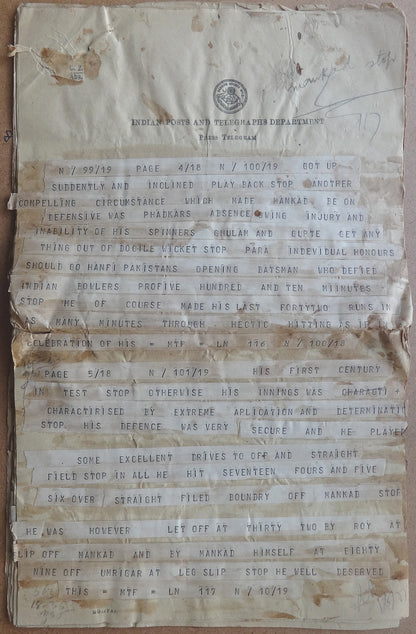 mankad stop
INDIAN POSTS AND TELEGRAPHS DEPARTMENT
PRESS TELEGRAM
N / 99/19 PAGE 4/18 N / 100/19 GOT UP
SUDDENLY AND INCLINED PLAY BACK STOP ANOTHER
COMPELLING CIRCUMSTANCE WHICH MADE MANKAD BE ON
DEFENSIVE WAS PHADKARS ABSENCE OWING INJURY AND
INABILITY OF HIS SPINNERS GHULAM AND GUPTE GET ANY
THING OUT OF DOCILE WICKET STOP PARA INDEVIDUAL HONOURS
SHOULD GO HANFI PAKISTANS OPENING BATSMAN WHO DEFIED
INDIAN BOWLERS PROFIVE HUNDRED AND TEN MIINUTES
STOP HE OF COURSE MADE HIS LAST FORTYTWO RUNS IN
AS MANY MINUTES THROUGH HECTIC HITTING AS IF IN
CELEBRATION OF HIS = MTF = LN 116 N / 100/18
PAGE 5/18 N / 101/19 HIS FIRST CENTURY
IN TEST STOP OTHERWISE HIS INNINGS WAS CHARACTI +
CHARACTIRISED BY EXTREME APLICATION AND DETERMINATI
STOP HIS DEFENCE WAS VERY SECURE AND HE PLAYED
SOME EXCELLENT DRIVES TO OFF AND STRAIGHT
FIELD STOP IN ALL HE HIT SEVENTEEN FOURS AND FIVE
SIX OVER STRAIGHT FILED BOUNDRY OFF MANKAD STOP
HE WAS HOWEVER LET OFF AT THIRTY TWO BY ROY AT
SLIP OFF MANKAD AND BY MANKAD HIMSELF AT EIGHTY
NINE OFF UMRIGAR AT LEG SLIP STOP HE WELL DESERVED
THIS = MTF = LN 117 N / 10/19